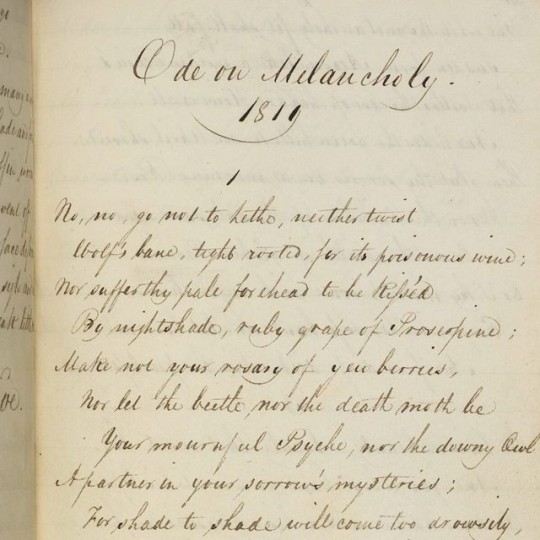 Ode on Melancholy.
1819
1
No, no, go not to Lethe, neither twist
Wolf's bane, tight rooted, for its poisonous wine;
Nor suffer thy pale forehead to be kiss'd
By nightshade, ruby grape of Proserpine;
Make not your rosary of yew berries,
Nor let the beetle, nor the death moth be
Your mournful Psyche, nor the downy Owl
A partner in your sorrow's mysteries;
For shade to shade will come too drowsily,